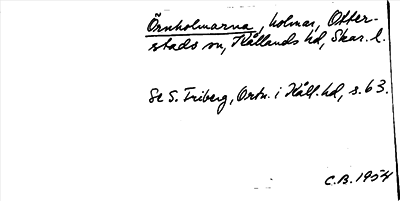 Örnholmarna, holmar, Otter-
stads sn, Kållands hd, Skar. l.
Se S. Friberg, Ortn. i Kåll. hd, s. 63.
C.B. 1954